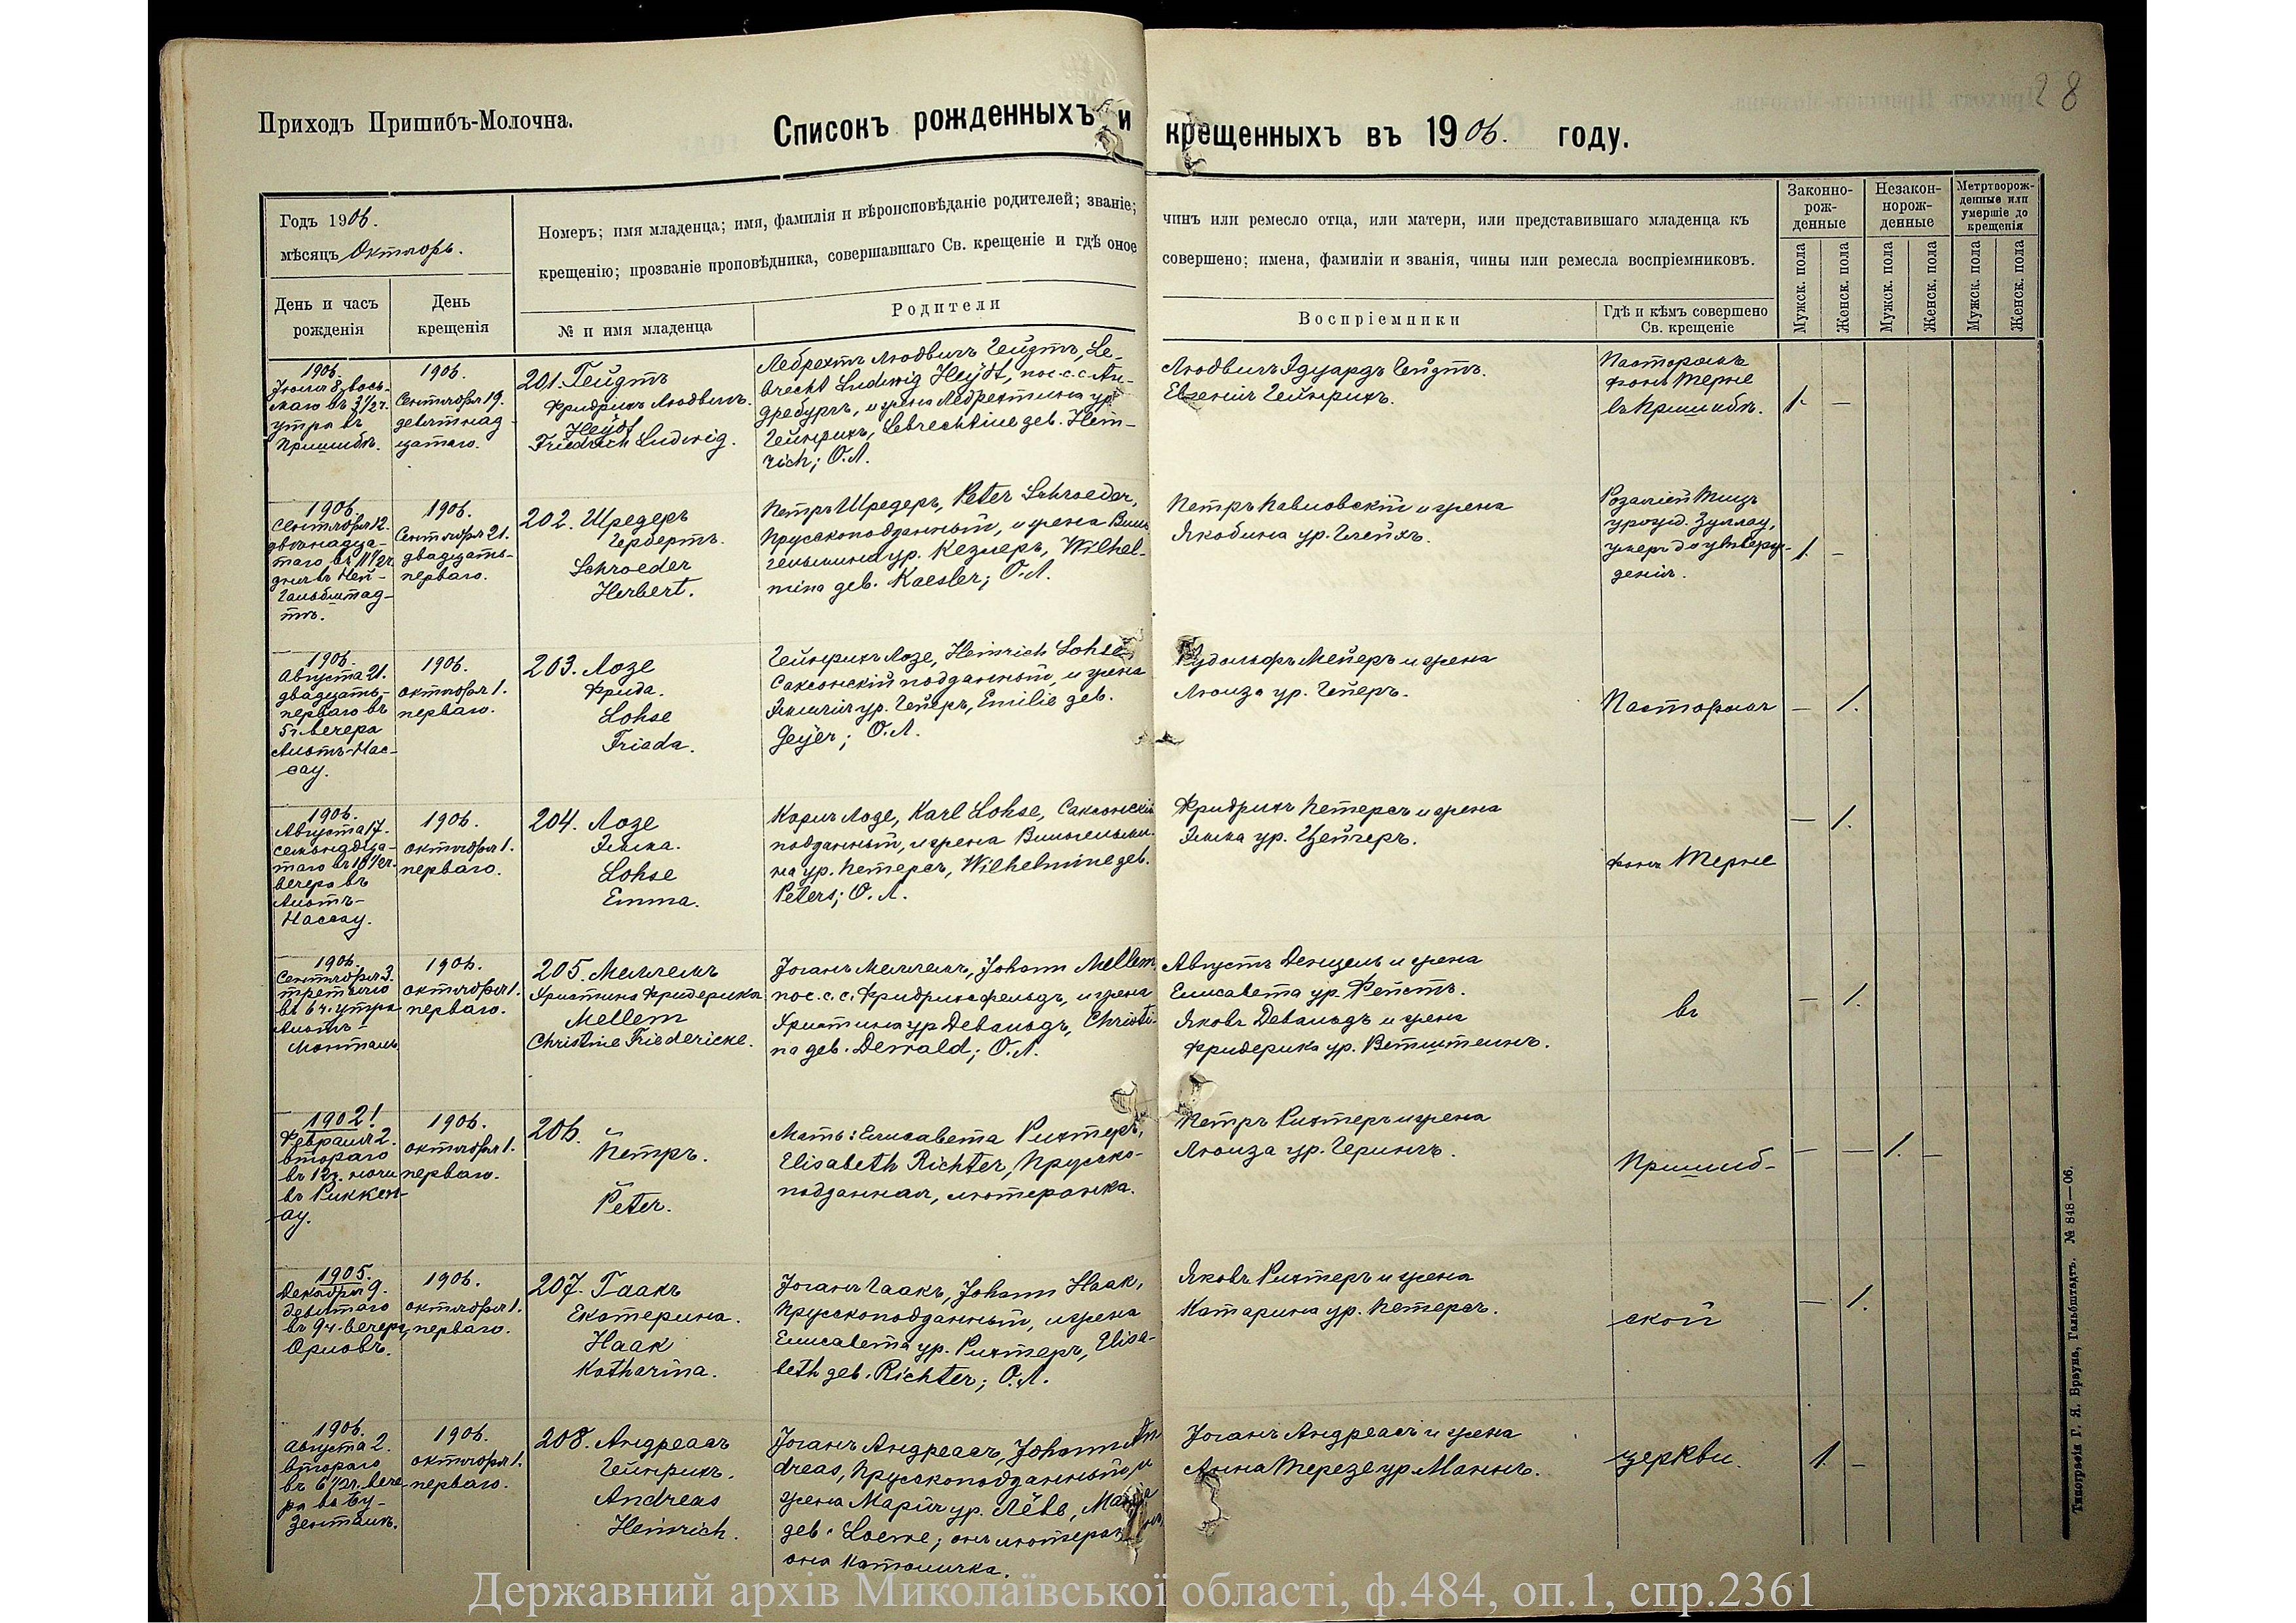 28
Приходъ Пришибъ-Молочна.
Списокъ рожденныхъ и крещенныхъ въ 1906. году.
Годъ 1906.
мѣсяцъ Октябрь.
Номеръ; имя младенца; имя, фамилія и вѣроисповѣданіе родителей; званіе; чинъ или ремесло отца, или матери, или представившаго младенца къ
крещенію; прозваніе проповѣдника, совершавшаго Св. крещеніе и гдѣ оное совершено; имена, фамиліи и званія, чины или ремесла воспріемниковъ.
Законно-
рож-
денные
Незакон-
норож-
денные
Метртворож-
денные или
умершіе до
крещенія
День и часъ
рожденія
День
крещенія
№ и имя младенца
Родители
Воспріемники
Гдѣ и кѣмъ совершено
Св. крещеніе
Мужск. пола
Женск. пола
Мужск. пола
Женск. пола
Мужск. пола
Женск. пола
1906.
Іюля 8, вось-
маго въ 3 1/2 ч.
утра въ
Пришибѣ.
1906.
Сентября 19.
девятнад-
цатаго.
201. Гейдтъ
Фридрихъ Людвигъ.
Heydt
Friedrich Ludwig.
Лебрехтъ Людвигъ Гейдтъ, Le-
brecht Ludwig Heydt, пос. с. с. Ан-
дребургъ, и жена Лебрехтина ур.
Гейнрихъ, Lebrechtine geb. Hein-
rich; О.Л.
Людвигъ Эдуардъ Гейдтъ.
Евгенія Гейнрихъ.
Пасторомъ
фонъ Терне
въ Пришибѣ.
1. –
1906.
Сентября 12.
двѣнадца-
таго въ 11 1/2 ч.
дня въ Ней-
Гальбштад-
тѣ.
1906.
Сентября 21.
двадцать-
перваго.
202. Шредеръ
Гербертъ.
Schroeder
Herbert.
Петръ Шредеръ, Peter Schroeder,
Прусскоподданный, и жена Виль
гельмина ур. Кезлеръ, Wilhel-
mina geb. Kaesler; О.Л.
Петръ Павловскій и жена
Якобина ур.
Розаліей Тицъ
урожд. Зуллау,
умеръ до утверж-
денія.
1. –
1906.
Августа 21.
двадцать-
перваго въ
5 ч. вечера
Альтъ-Нас-
сау.
1906.
октября 1.
перваго.
203. Лозе
Фрида.
Lohse
Frieda.
Гейнрихъ Лозе, Heinrich Lohse
Саксонскій подданный, и жена
Эмилія ур. Гейеръ, Emilie geb.
Geyer; О.Л.
Рудольфъ Мейеръ и жена
Луиза ур. Гейеръ.
Пасторомъ
– 1.
1906.
Августа 17.
семьнадца-
таго въ 10 1/2 ч.
вечера въ
Альтъ-
Нассау.
1906.
октября 1.
перваго.
204. Лозе
Эмма.
Lohse
Emma.
Карлъ Лозе, Karl Lohse, Саксонскій
подданный, и жена Вильгельми-
на ур. Петерсъ, Wilhelmine geb.
Peters; О.Л.
Фридрихъ Петерсъ и жена
Эмма ур. Цейгеръ.
фонъ Терне
– 1.
1906.
Сентября 3.
третьяго
въ 6 ч. утра
Альтъ-
Монталь.
1906.
октября 1.
перваго.
205. Меллемъ
Христина Фридерика
Mellem
Christine Friedericke.
Іоганъ Меллемъ, Johann Mellem,
пос. с. с. Фридрихсфельдъ, и жена
Христина ур Девальдъ, Christi-
na geb. Dewald; О.Л.
Августъ Денцель и жена
Елисавета ур. Фейстъ.
Яковъ Девальдъ и жена
Фридерика ур. Ветштейнъ.
въ
– 1.
1902!
Февраля 2.
втораго
въ 12 ч. ночи
въ Риккен-
ау.
1906.
октября 1.
перваго.
206.
Петръ.
Peter.
Мать: Елисавета Рихтеръ,
Elisabeth Richter, Прусско-
подданная, лютеранка.
Петръ Рихтеръ и жена
Луиза ур. Герингъ.
Пришиб-
– – 1. –
1905.
Декабря 9.
девятаго
въ 9 ч. вечера
Орловъ.
1906.
октября 1.
перваго.
207. Гаакъ
Екатерина.
Haak
Katharina.
Іоганъ Гаакъ, Johann Haak,
Прусскоподданный, и жена
Елисавета ур. Рихтеръ, Elisa-
beth geb. Richter; О.Л.
Яковъ Рихтеръ и жена
Катарина ур. Петерсъ.
ской
– 1.
1906.
Августа 2.
втораго
въ 6 1/2 ч. вече
ра въ Бу-
зенталѣ.
1906.
октября 1.
перваго.
208. Андреасъ
Гейнрихъ.
Andreas
Heinrich.
Іоганъ Андреасъ, Johann An
dreas, Прусскоподданный, и
жена Марія ур. Лёве, Maria
geb. Loewe; онъ лютеранинъ,
она католичка.
Іоганъ Андреасъ и жена
Анна Терезе ур Маннъ.
церкви.
1. –
Типографія Г. Я. Брауна, Гальбштадтъ. № 848—06.
Державний архів Миколаївської області, ф.484, оп.1, спр.2361